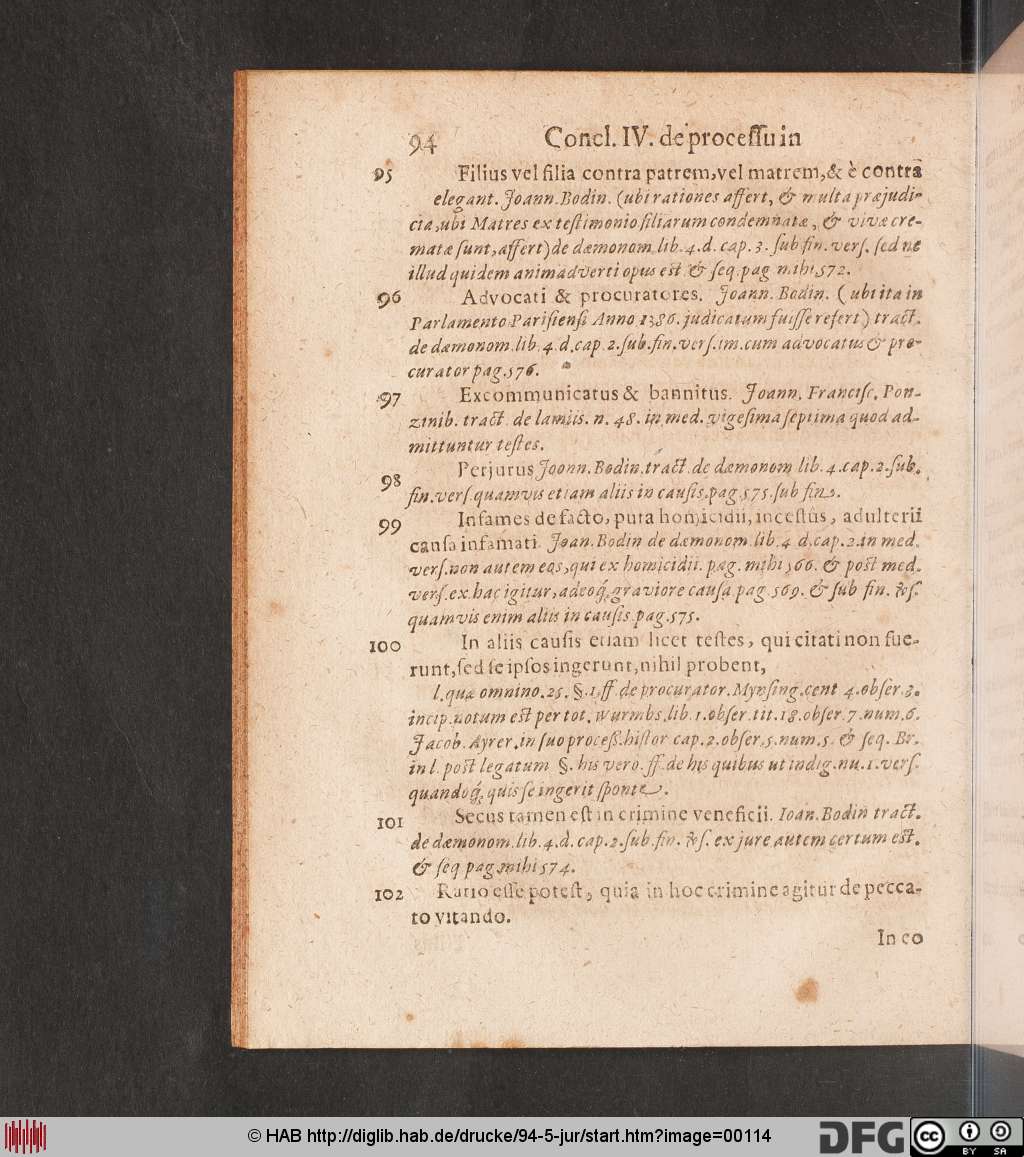 94 Concl. IV. de processu in
95 Filius vel filia contra patrem, vel matrem, & è contra
elegant. Joann. Bodin. (ubi rationes affert, & multa præjudi-
cia, ubi Matres ex testimonio filiarum condemnatæ, & vivæ cre-
matæ sunt, affert) de dæmonom. lib. 4. d. cap. 3. sub fin. vers. sed ne
illud quidem animadverti opus est. & seq. pag mihi 572.
96 Advocati & procuratores. Joann. Bodin. ( ubi ita in
Parlamento Parisiensi Anno 1386. judicatum fuisse refert) tract.
de dæmonom. lib. 4. d. cap. 2. sub. fin. vers. im. cum advocatus & pro-
curator pag. 576.
97 Excommunicatus & bannitus. Joann. Francisc. Pon-
zinib. tract. de lamiis. n. 48. in med. vigesima septima quod ad-
mittuntur testes.
98 Perjurus Joonn. Bodin. tract. de dæmonom. lib. 4. cap. 2. sub.
fin. vers. quamvis etiam aliis in causis. pag. 575. sub fin.
99 Infames de facto, puta homicidii, incestus, adulterii
causa infamati. Joan. Bodin de dæmonom. lib. 4 d. cap. 2. in med.
vers. non autem eos, qui ex homicidii. pag. mihi 566. & post med.
vers. ex. hac igitur, adeoq́; graviore causa pag. 569. & sub fin. ℣s.
quamvis enim aliis in causis. pag. 575.
100 In aliis causis etiam licet testes, qui citati non fue-
runt, sed se ipsos ingerunt, nihil probent,
l. quæ omnino. 25. §. 1. ff. de procurator. Mynsing. cent 4. obser. 3.
incip. notum est per tot. Wurmbs. lib. 1. obser. tit. 18. obser. 7. num. 6.
Jacob. Ayrer. in suo proceß. histor cap. 2. obser. 5. num. 5. & seq. Br.
in l. post legatum §. his vero. ff. de his quibus ut indig. nu. 1. vers.
quandoq́; quis se ingerit sponte.
101 Secus tamen est in crimine veneficii. Ioan. Bodin tract.
de dæmonom. lib. 4. d. cap. 2. sub. fin. ℣s. ex jure autem certum est.
& seq pag. mihi 574.
102 Ratio esse potest, quia in hoc crimine agitur de pecca-
to vitando.
In co
© HAB http://diglib.hab.de/drucke/94-5-jur/start.htm?image=00114
DFG
cc
BY SA